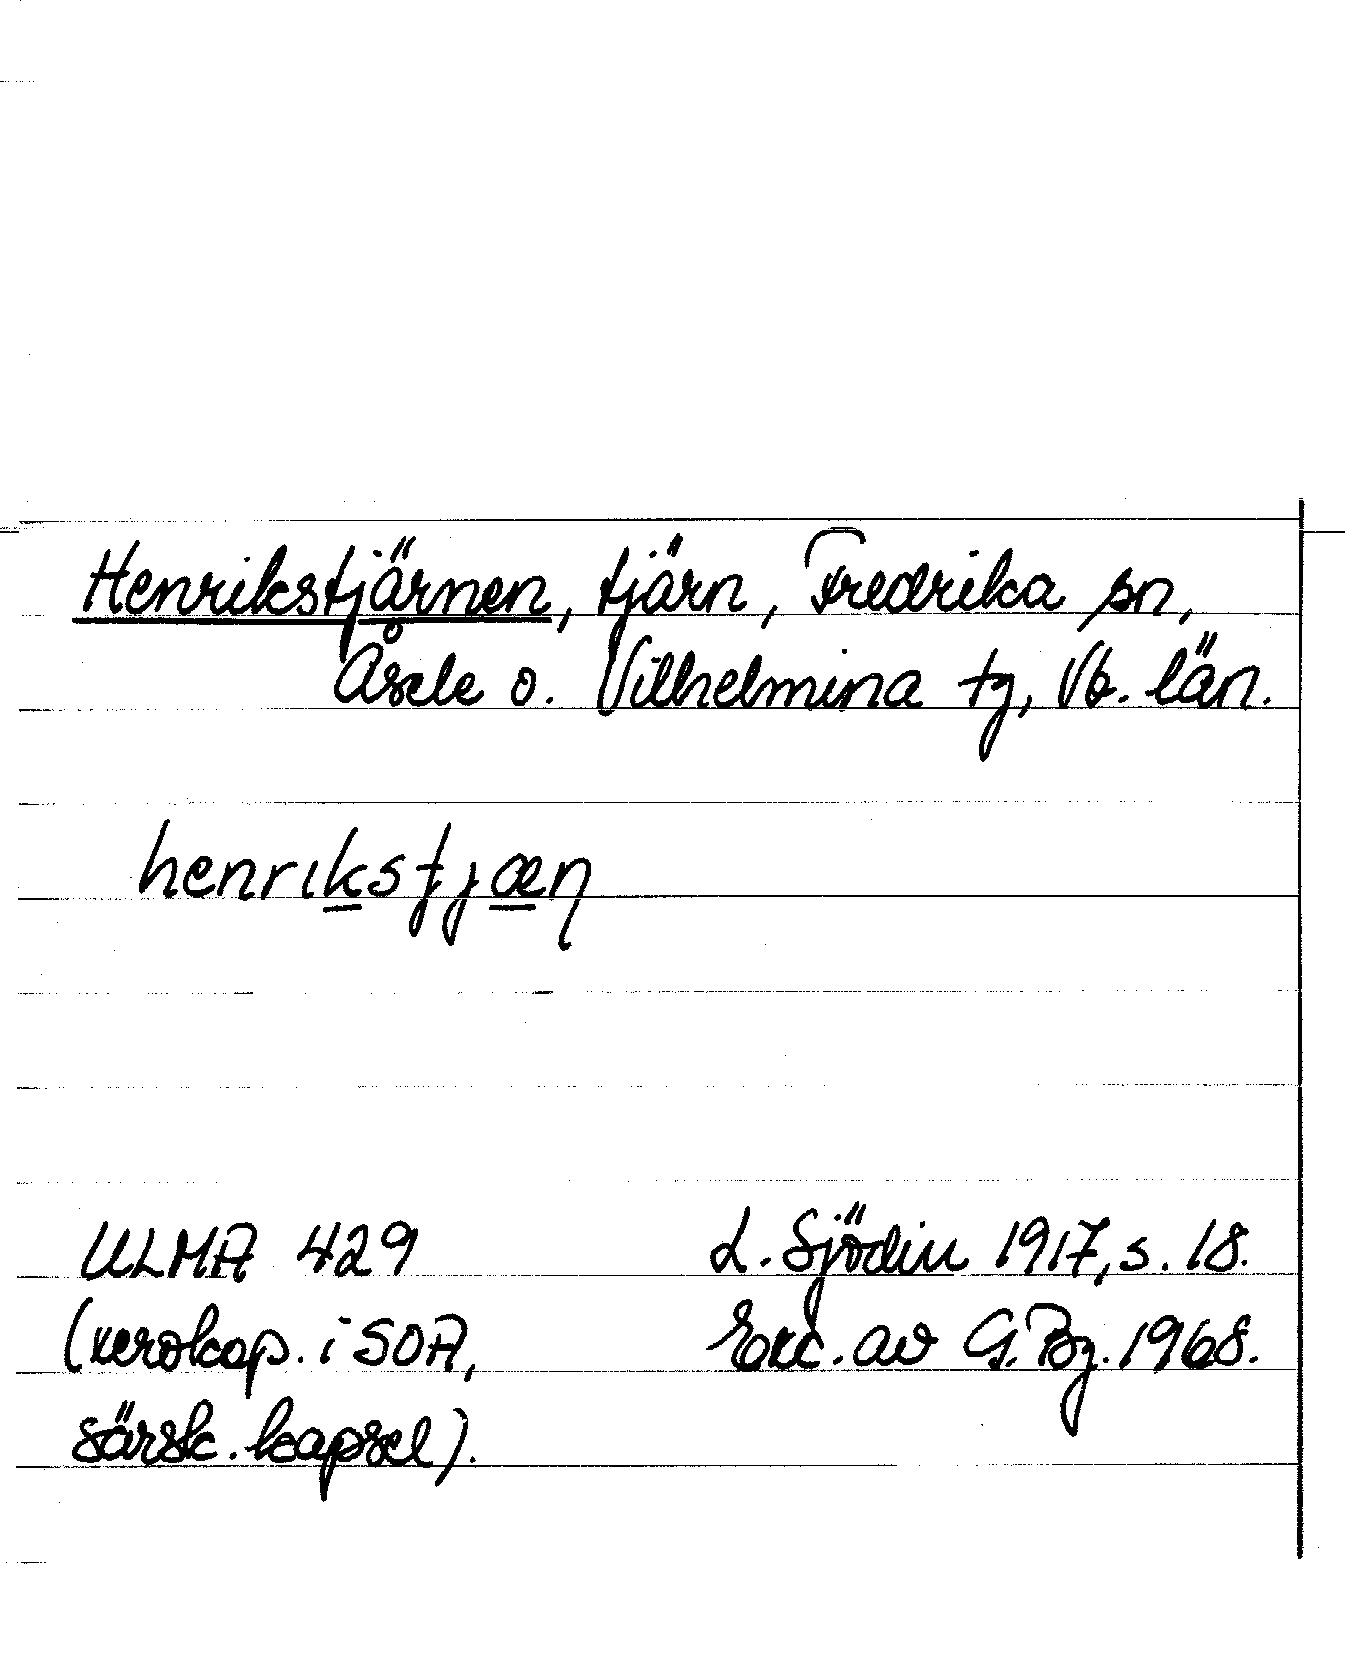 Henrikstjärnen, tjärn, Fredrika sn,
Åsele o. Vilhelmina tg, Vb. län.
henrikstjæn
ULMA 429
(xerokop. i SOA,
särsk. kapsel).
L. Sjödin 1917, s. 18.
Exc. av G. Bg. 1968.